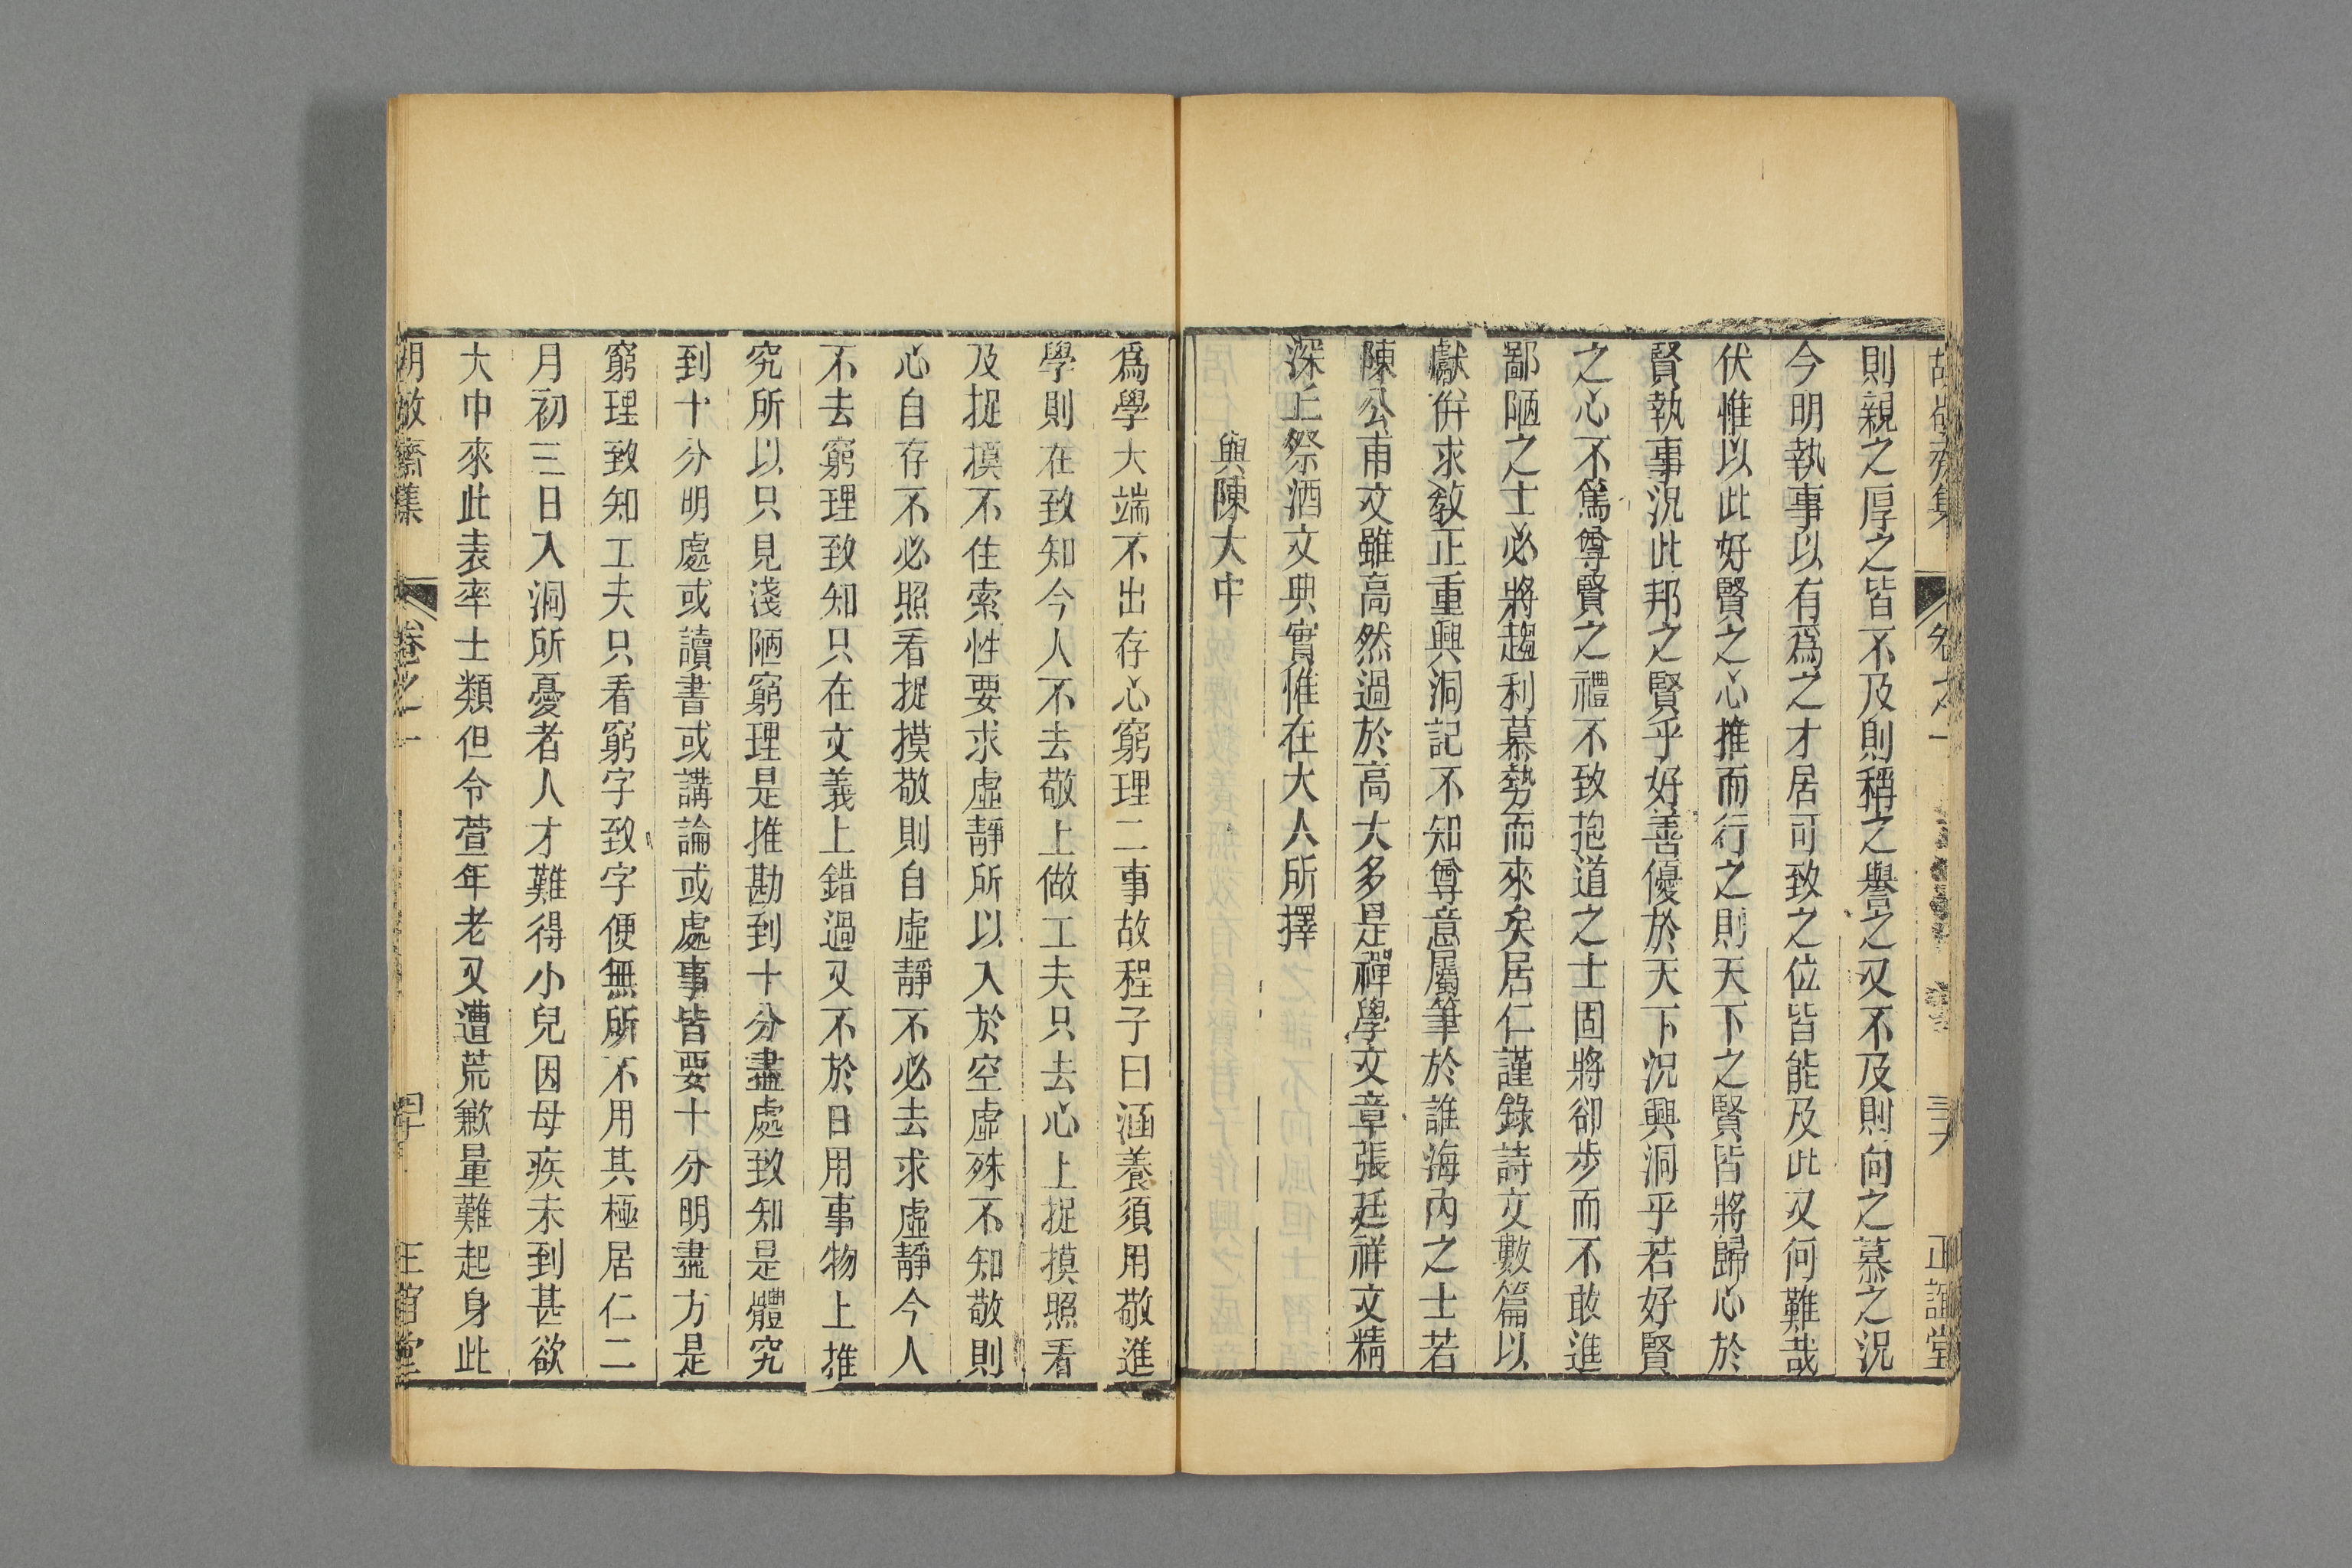 胡敬齋集 卷之一 三六 正誼堂
則親之厚之皆不及則稱之譽之又不及則向之慕之況
今明執事以有爲之才居可致之位皆能及此又何難哉
伏惟以此好賢之心推而行之則天下之賢皆將歸心於
賢執事況此邦之賢乎好善優於天下況興洞乎若好賢
之心不篤尊賢之禮不致抱道之士固將卻步而不敢進
鄙陋之士必將趨利慕勢而來矣居仁謹錄詩文數篇以
獻併求教正重興洞記不知尊意屬筆於誰海內之士若
陳公甫文雖高然過於高大多是禪學文章張廷祥文精
深丘祭酒文典實惟在大人所擇
與陳大中
爲學大端不出存心窮理二事故程子曰涵養須用敬進
學則在致知今人不去敬上做工夫只去心上捉摸照看
及捉摸不住索性要求虛靜所以入於空虛殊不知敬則
心自存不必照看捉摸敬則自虛靜不必去求虛靜今人
不去窮理致知只在文義上錯過又不於日用事物上推
究所以只見淺陋窮理是推勘到十分盡處致知是體究
到十分明處或讀書或講論或處事皆要十分明盡方是
窮理致知工夫只看窮字致字便無所不用其極居仁二
月初三日入洞所憂者人才難得小兒因母疾未到甚欲
大中來此表率士類但令萱年老又遭荒歉量難起身此
胡敬齋集 卷之一 正誼堂